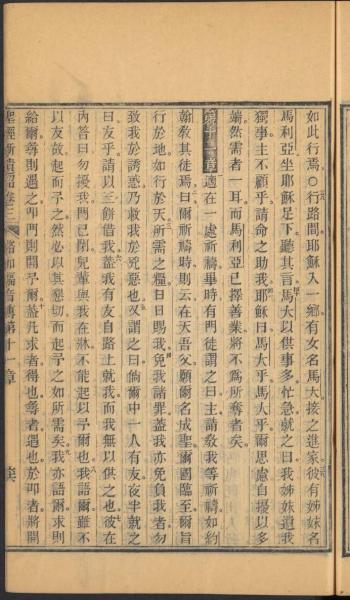 如此行焉○行路間耶穌入一鄉有女名馬大接之進家彼有姊妹名
馬利亞坐耶穌足下聽其言馬大以供事多忙急就之曰我姊妹遺我
獨事主不顧乎請命之助我耶穌曰馬大乎馬大乎爾思慮自擾以多
端然需者一耳而馬利亞已擇善業將不爲所奪者矣
適在一處祈禱畢時有門徒謂之曰主請敎我等祈禱如約
翰敎其徒焉曰爾祈禱時則云在天吾父願爾名成聖爾國臨至爾旨
行於地如行於天所需之糧日日賜我免我諸罪蓋我亦免負我者勿
致我於誘惑乃救我於兇惡也又謂之曰倘爾中一人有友夜半就之
曰友乎請以三餅借我蓋我有友自路上就我而我無以供之也彼在
內答曰勿擾我門已閉兒輩與我在牀不能起以予爾也我語爾雖不
以友故起而予之然必以其懇切而起予之如所需矣我亦語爾求則
給爾尋則遇之叩門則開予爾蓋凡求者得也尋者遇也於叩者將開
聖經新遺詔卷三 路加福音傳第十一章 矣